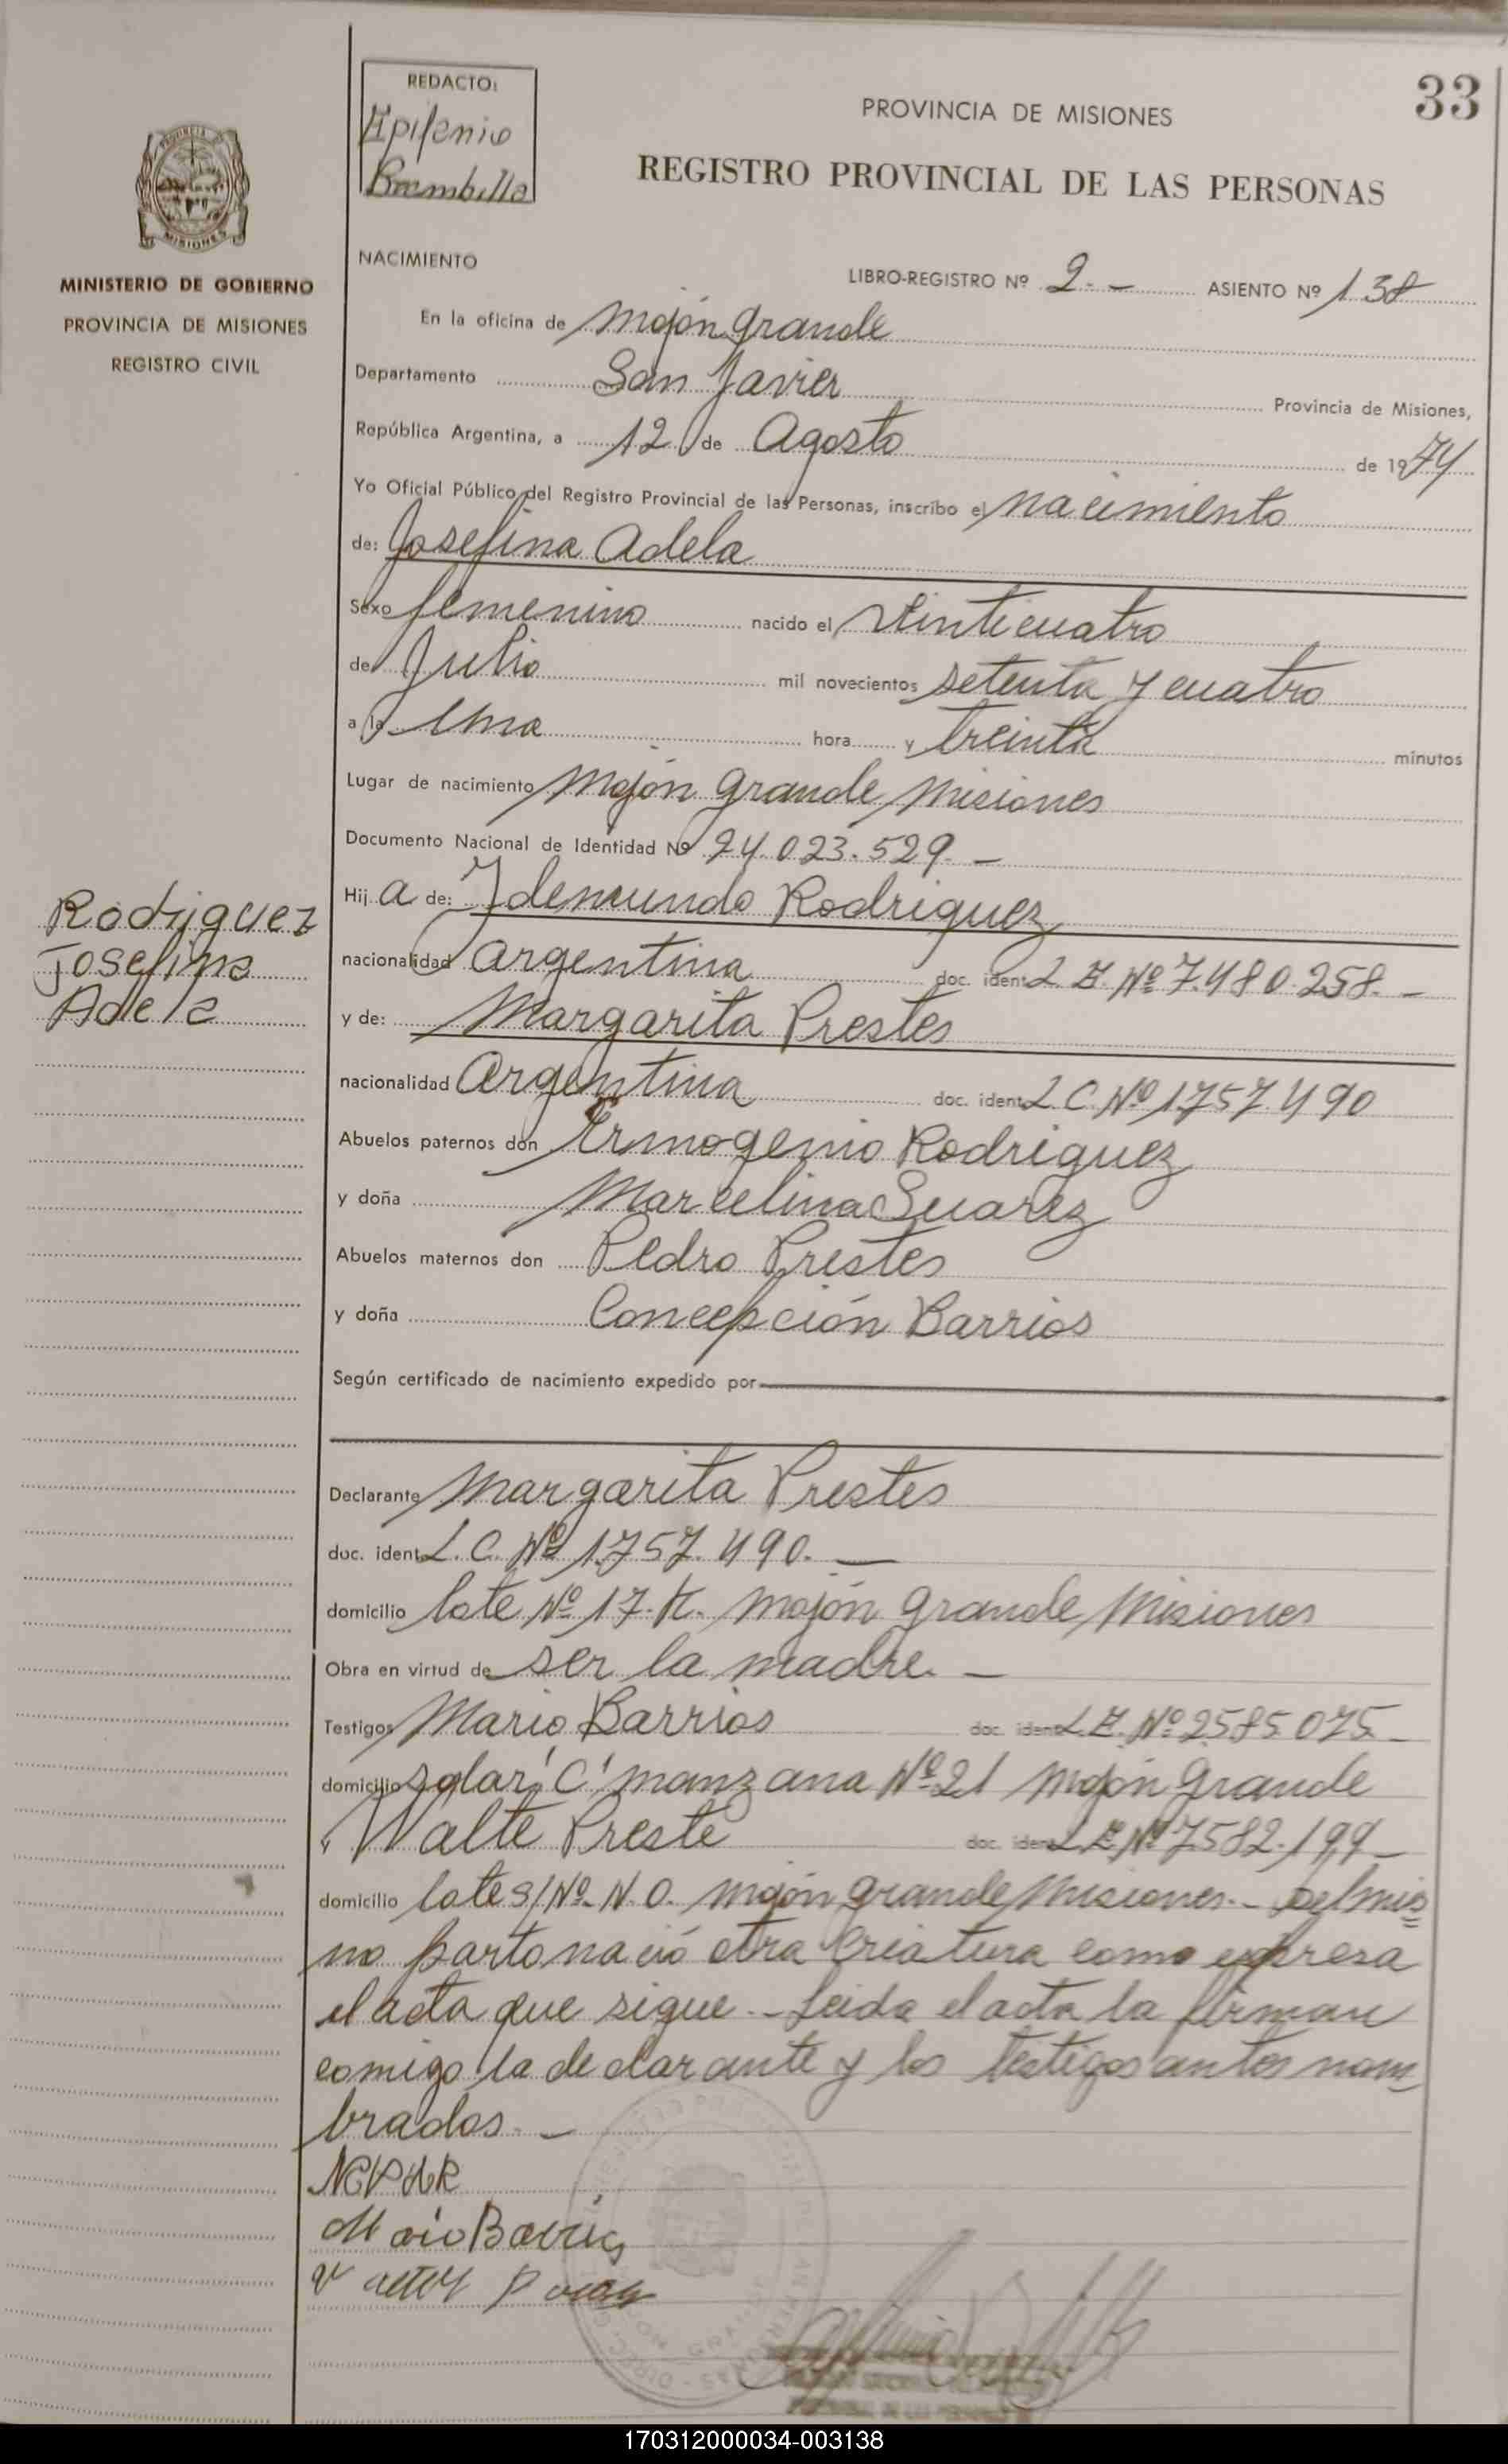 33
REDACTO:
Epifenio
Brambilla
PROVINCIA DE MISIONES
REGISTRO PROVINCIAL DE LAS PERSONAS
MISIONES
MINISTERIO DE GOBIERNO
PROVINCIA DE MISIONES
REGISTRO CIVIL
NACIMIENTO
LIBRO-REGISTRO Nº 2.- ASIENTO Nº 138
En la oficina de Mojón grande
Departamento San Javier Provincia de Misiones,
República Argentina, a 12 de Agosto de 1974
Yo Oficial Público del Registro Provincial de las Personas, inscribo el nacimiento
de: Josefina Adela
Sexo femenino nacido el Veinticuatro
de Julio mil novecientos setenta y cuatro
a la Una hora y treinta minutos
Lugar de nacimiento Mojón grande Misiones
Documento Nacional de Identidad Nº 24.023.529.-
Hij a de: Idemundo Rodriguez
Rodriguez
Josefina
Adela
nacionalidad Argentina doc. ident. L E. Nº 7.480.258.-
y de: Margarita Prestes
nacionalidad Argentina doc. ident. L C. Nº 1757.490
Abuelos paternos don Ermogenio Rodriguez
y doña Marcelina Suarez
Abuelos maternos don Pedro Prestes
y doña Concepción Barrios
Según certificado de nacimiento expedido por
Declarante Margarita Prestes
doc. ident. L. C. Nº 1.757.490.-
domicilio lote Nº 17. K. Mojón grande Misiones
Obra en virtud de ser la madre.-
Testigos Mario Barrios doc. ident. L E. Nº 2585.075.-
domicilio solar 'C' manzana Nº 21 Mojón grande
" Walte Preste doc. ident. L E Nº 7582.199-
domicilio lote S/Nº. N. O. Mojón grande Misiones.- Del mis=
mo parto nació otra criatura como expresa
el acta que sigue.- Leida el acta la firman
comigo la declarante y los testigos antes nom=
brados.-
Mario Barrios
170312000034-003138